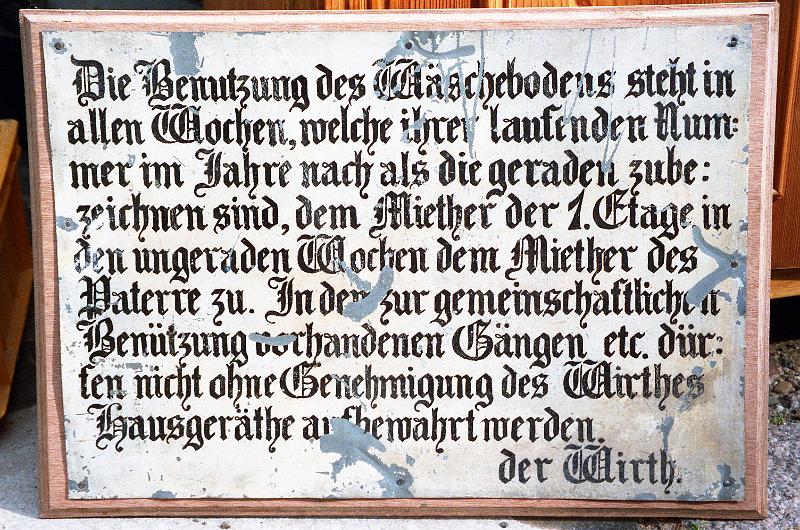 Die Benutzung des Wäschebodens steht in
allen Wochen, welche ihrer laufenden Num=
mer im Jahre nach als die geraden zube:
zeichnen sind, dem Miether der 1. Etage in
den ungeraden Wochen dem Miether des
Paterre zu. In den zur gemeinschaftlichen
Benützung vorhandenen Gängen etc. dür:
fen nicht ohne Genehmigung des Wirthes
Hausgeräthe aufbewahrt werden.
der Wirth.